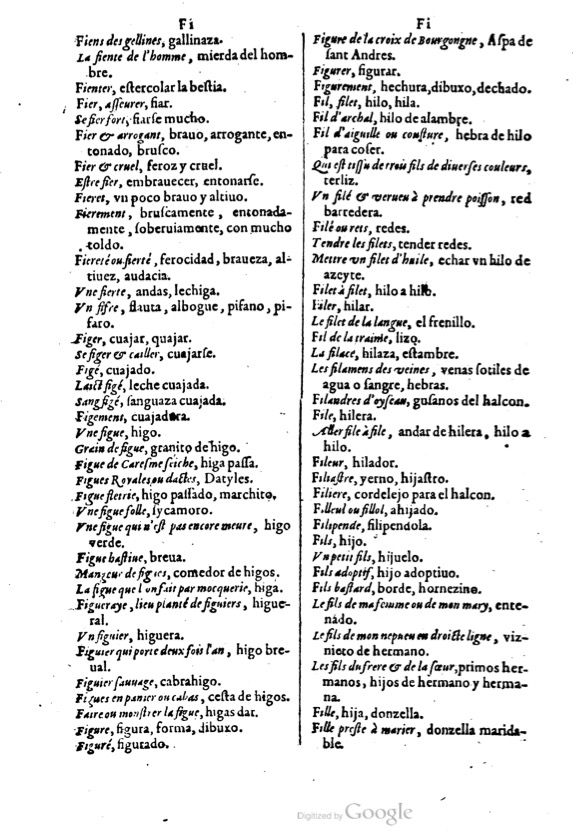 Fi
Fiens des gellines, gallinaza.
La fiente de l'homme, mierda del hom-
bre.
Fienter, eſtercolar la beſtia.
Fier, aſſeurer, fiar.
Se fier fort, fiarſe mucho.
Fier & arrogant, brauo, arrogante, en-
tonado, bruſco.
Fier & cruel, feroz y cruel.
Eſtre fier, embrauecer, entonarſe.
Fieret, vn poco brauo y altiuo.
Fierement, bruſcamente, entonada-
mente, ſoberuiamente, con mucho
toldo.
Fiereté ou fierté, ferocidad, braueza, al-
tiuez, audacia.
Vne fierte, andas, lechiga.
Vn fifre, flauta, albogue, pifano, pi-
faro.
Figer, cuajar, quajar.
Se figer & cailler, cuajarſe.
Figé, cuajado.
Laict figé, leche cuajada.
Sang figé, ſanguaza cuajada.
Figement, cuajadura.
Vne figue, higo.
Grain de figue, granito de higo.
Figue de Careſme ſeiche, higa paſſa.
Figues Royales, ou dactes, Datyles.
Figue fletrie, higo paſſado, marchito.
Vne figue folle, ſycamoro.
Vne figue qui n'eſt pas encore meure, higo
verde.
Figue haſtiue, breua.
Mangeur de figues, comedor de higos.
La figue que l'on fait par mocquerie, higa.
Figueraye, lieu planté de figuiers, higue-
ral.
Vn figuier, higuera.
Figuier qui porte deux fois l'an, higo bre-
ual.
Figuier ſauuage, cabrahigo.
Figues en panier ou cabas, ceſta de higos.
Faire ou monſtrer la figue, higas dar.
Figure, figura, forma, dibuxo.
Figuré, figurado.
Fi
Figure de la croix de Bourgongne, Aſpa de
ſant Andres.
Figurer, figurar.
Figurement, hechura, dibuxo, dechado.
Fil, filet, hilo, hila.
Fil d'archal, hilo de alambre.
Fil d'aiguille ou couſture, hebra de hilo
para coſer.
Qui eſt tiſſu de trois fils de diuerſes couleurs,
terliz.
Vn filé & verueu à prendre poiſſon, red
barredera.
Filé ou rets, redes.
Tendre les filets, tender redes.
Mettre vn filet d'huile, echar vn hilo de
azeyte.
Filet à filet, hilo a hilo.
Filer, hilar.
Le filet de la langue, el frenillo.
Fil de la traime, lizo.
La filace, hilaza, eſtambre.
Les filamens des veines, venas ſotiles de
agua o ſangre, hebras.
Filandres d'oyſeau, guſanos del halcon.
File, hilera.
Aller file à file, andar de hilera, hilo a
hilo.
Fileur, hilador.
Filiaſtre, yerno, hijaſtro.
Filiere, cordelejo para el halcon.
Filleul ou fillol, ahijado.
Filipende, filipendola.
Fils, hijo.
Vn petit fils, hijuelo.
Fils adoptif, hijo adoptiuo.
Fils baſtard, borde, hornezino.
Le fils de ma femme ou de mon mary, ente-
nado.
Le fils de mon nepueu en droicte ligne, viz-
nieto de hermano.
Les fils du frere & de la ſœur, primos her-
manos, hijos de hermano y herma-
na.
Fille, hija, donzella.
Fille preſte à marier, donzella marida-
ble.
Digitized by Google